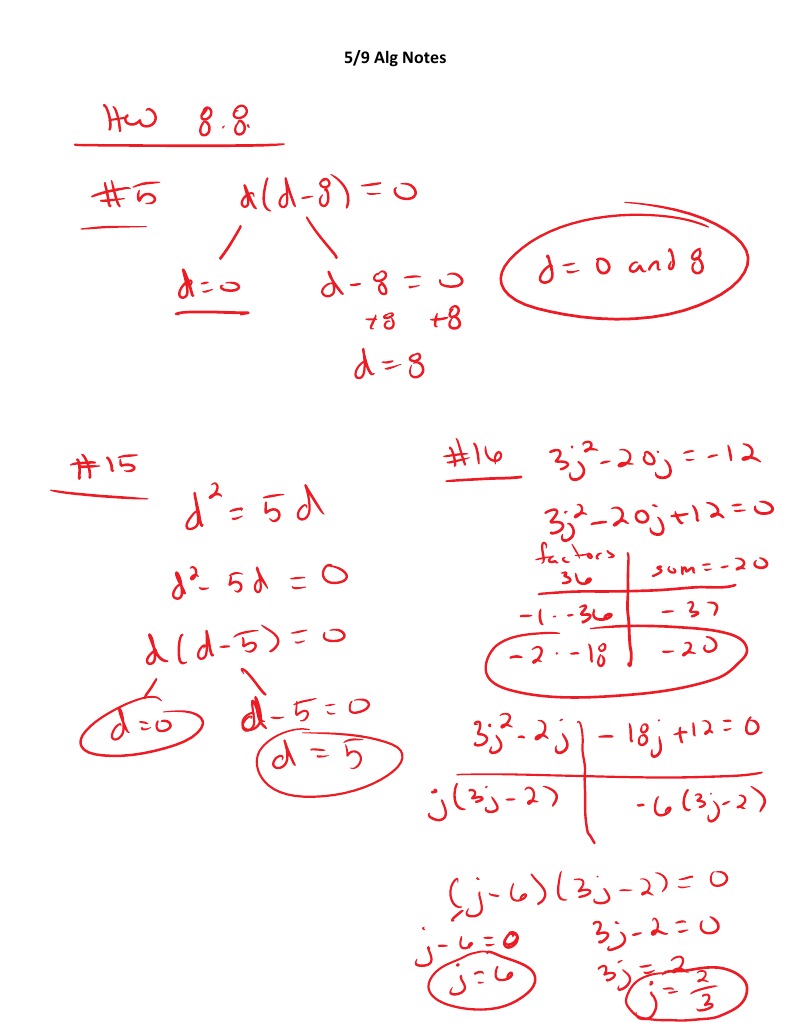 5/9 Alg Notes
HW 8.8
#5 d(d-8) = 0
d=0 d - 8 = 0
+8 +8
d = 8
d = 0 and 8
#15
d² = 5d
d² - 5d = 0
d(d-5) = 0
d=0 d-5=0
d = 5
#16 3j² - 20j = -12
3j² - 20j + 12 = 0
factors 36 sum = -20
-1 · -36 -37
-2 · -18 -20
3j² - 2j - 18j + 12 = 0
j(3j-2) -6(3j-2)
(j-6)(3j-2) = 0
j-6=0 3j-2=0
j=6 3j=2
j = 2/3